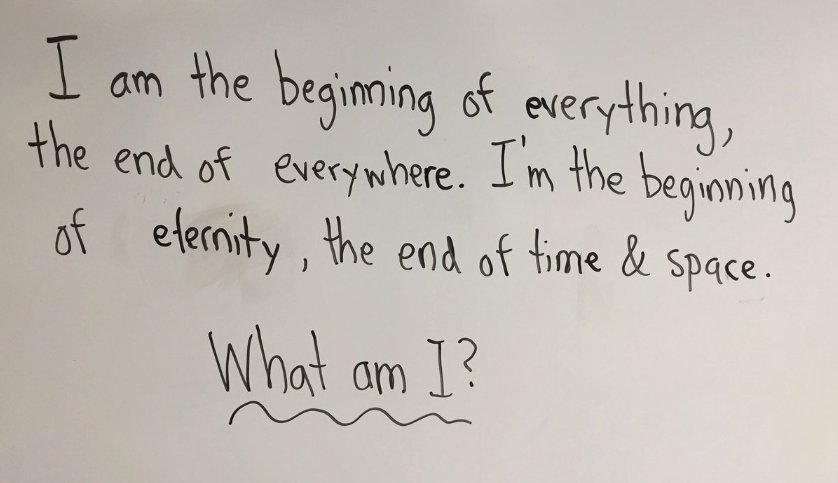 I am the beginning of everything,
the end of everywhere. I'm the beginning
of eternity, the end of time & space.
What am I?